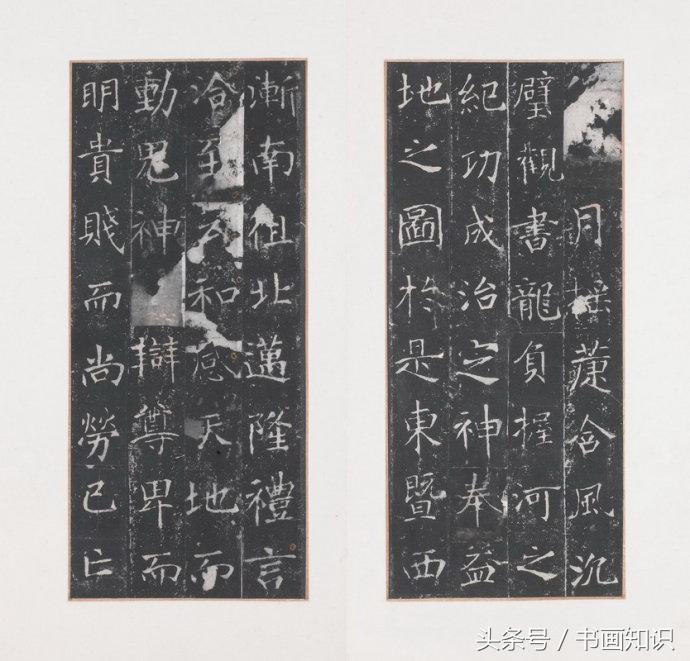 月摇萐含風沉
璧觀書龍負握河之
紀功成治之神奉益
地之圖於是東暨西
漸南徂北邁隆禮言
洽至云和感天地而
動鬼神辯尊卑而
明貴賤而尚勞己亡
头条号 / 书画知识